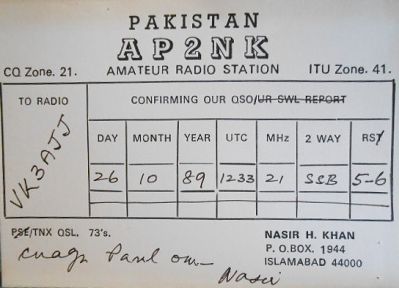 PAKISTAN
AP2NK
CQ Zone. 21. AMATEUR RADIO STATION ITU Zone. 41.
TO RADIO CONFIRMING OUR QSO/UR SWL REPORT
VK3AJJ
DAY MONTH YEAR UTC MHz 2 WAY RST
26 10 89 1233 21 SSB 5-6
PSE/TNX QSL. 73's. NASIR H. KHAN
P.O.BOX. 1944
ISLAMABAD 44000
Paul om
Nasir